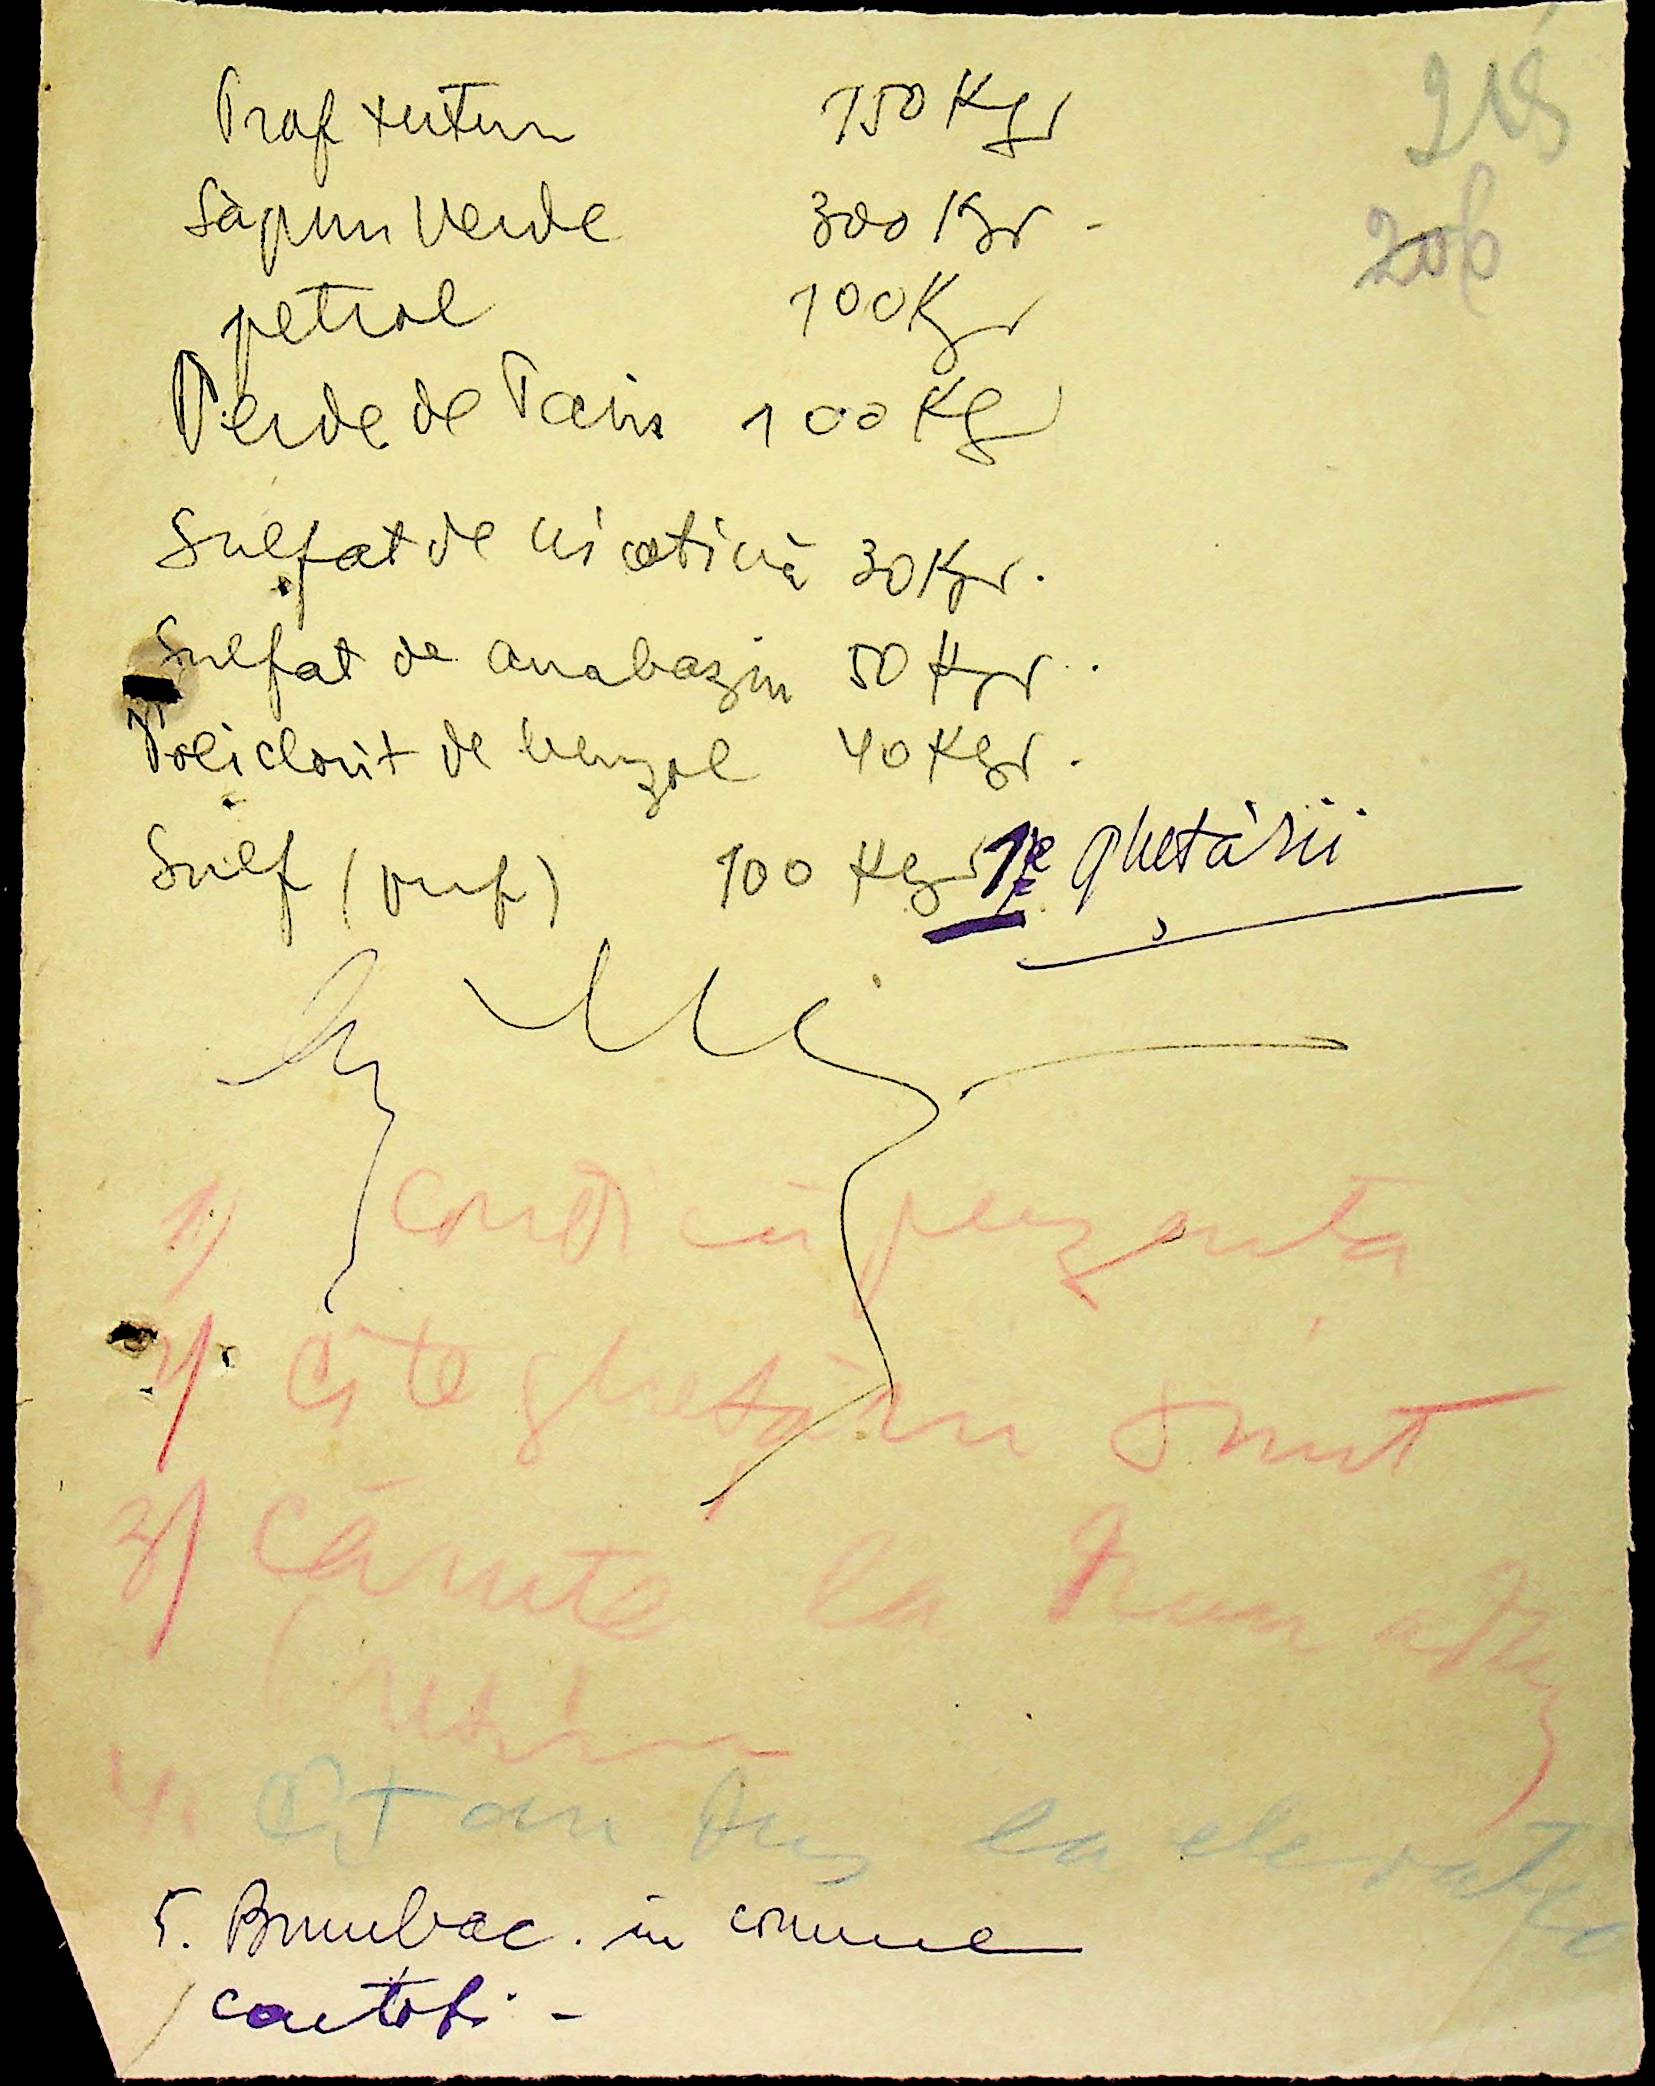 Praf tutun 150 Kgr
215
Săpun Verde 300 Kgr -
206
petrol 100 Kgr
Verde de Paris 100 Kg
Sulfat de nicotină 30 Kgr.
Sulfat de anabazin 50 Kgr.
Policlorit de benzol 40 Kgr.
Sulf (puf) 100 Kgr
1, ghețării
1)
2) Cîte ghețării sînt
3) Cărute la drum
4. Cît au dus la elevator
5. Bumbac. in comune
cartofi -